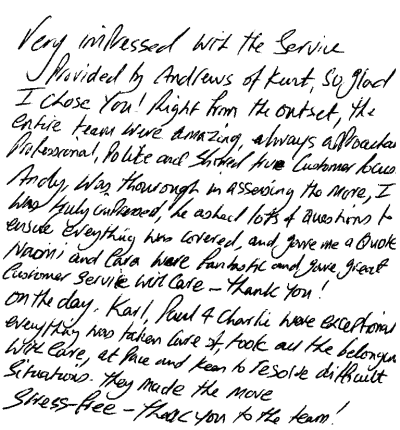 Very impressed with the Service
Provided by Andrews of Kent, So glad
I Chose You! Right from the outset, the
entire team were amazing, always approachable
Professional, Polite and Showed true Customer focus.
Andy, was thourough in assessing the move, I
was truly impressed, he asked lots of questions to
ensure everything was covered, and gave me a Quote
Naomi and Cara were fantastic and gave great
Customer Service with Care - thank You!
On the day, Karl, Paul & Charlie were exceptional
everything was taken care of, took all the belongings
with Care, at Pace and keen to resolve difficult
Situations. they made the move
Stress-free - thank you to the team!